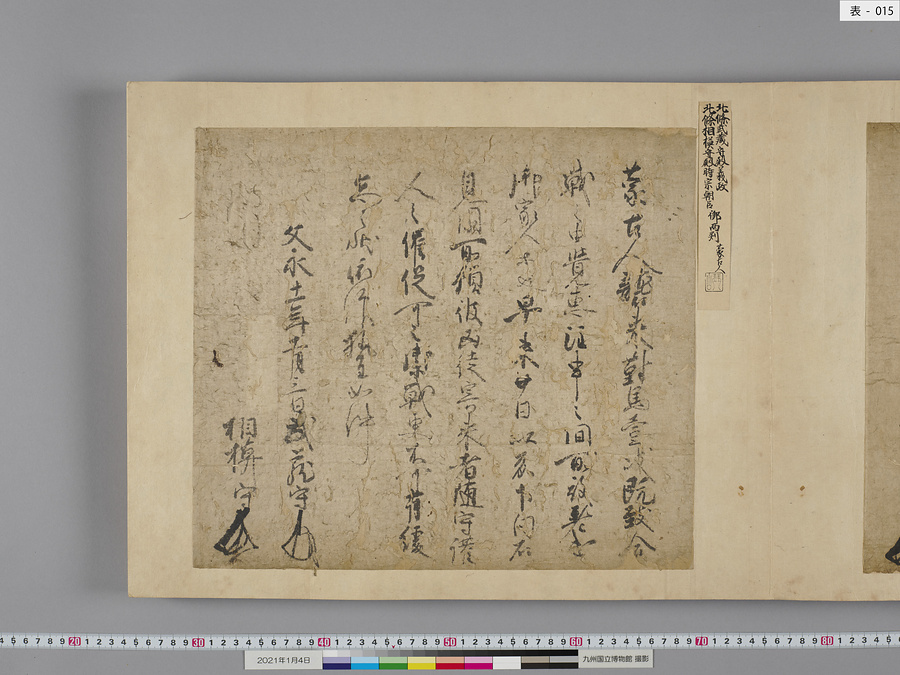 表 - 015
北條武藏守殿義政
北條相模守殿時宗朝臣 御両判 蒙古人
蒙古人襲来對馬壹岐既致合
戦之由覚恵注申之間所被差遣
御家人等也早来廿日以前下向石
見國所領彼凶徒寄来者随守護
人之催促可令禦戦更不可有緩
怠之状依仰執達如件
文永十一年十一月三日武藏守
相模守
2021年1月4日
九州国立博物館 撮影